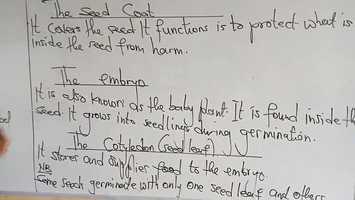 The Seed Coat
It Covers the seed It functions is to protect what is
inside the seed from harm.
The embryo
It is also known as the baby plant. It is found inside the
seed. It grows into seedlines during germination.
The Cotyledon (seed leaf)
It stores and supplies food to the embryo.
NB
Some seeds germinate with only one seed leaf and others